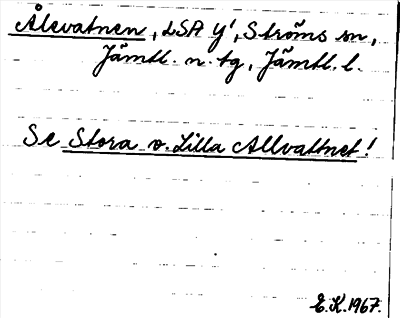 Ålevatnen, LSA Y', Ströms sn,
Jämtl. n. tg, Jämtl. l.
Se Stora o. Lilla Allvattnet!
E.K. 1967.